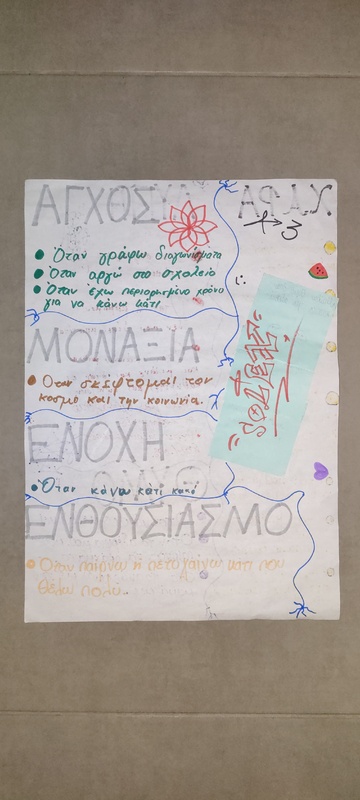 ΑΓΧΘΣ
ΧΑΡΑ
• Όταν γράφω διαγωνίσματα
• Όταν αργώ στο σχολείο
• Όταν έχω περιορισμένο χρόνο
για να κάνω κάτι
ΜΟΝΑΞΙΑ
• Όταν σκέφτομαι τον
κόσμο και την κοινωνία.
ΕΝΟΧΗ
• Όταν κάνω κάτι κακό
ΕΝΘΟΥΣΙΑΣΜΟ
• Όταν παίρνω ή πετυχαίνω κάτι που
θέλω πολύ.